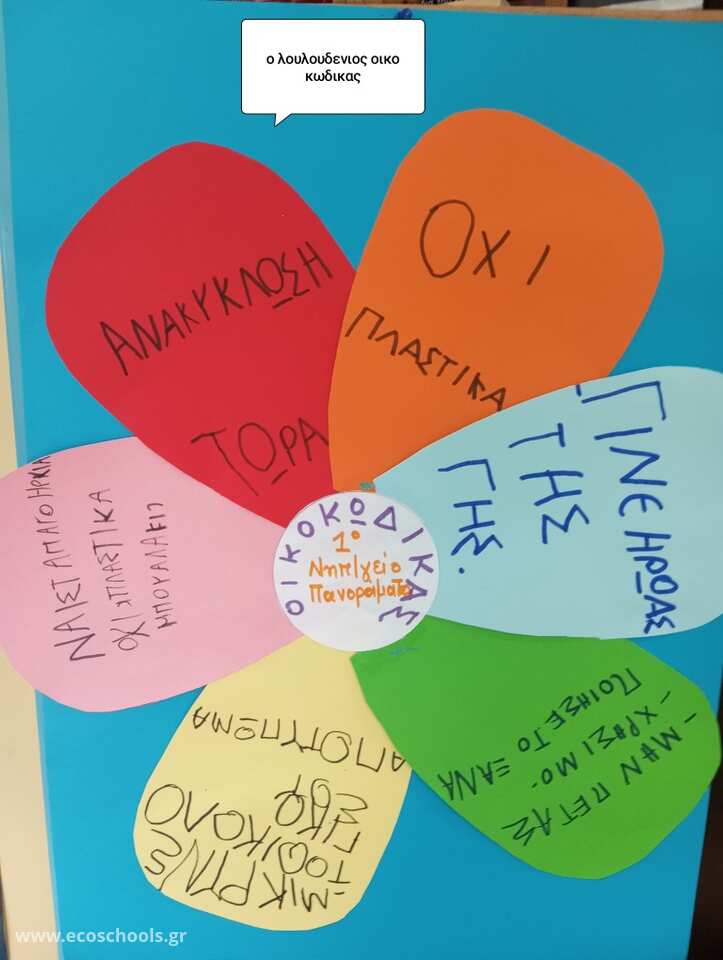 ο λουλουδενιος οικο
κωδικας
ΑΝΑΚΥΚΛΩΣΗ
ΤΩΡΑ
ΟΧΙ
ΠΛΑΣΤΙΚΑ
ΓΙΝΕ ΗΡΩΑΣ
ΤΗΣ
ΓΗΣ.
-ΜΗΝ ΠΕΤΑΣ
-ΧΡΗΣΙΜΟ-
ΠΟΙΗΣΕ ΤΟ ΞΑΝΑ
-ΜΙΚΡΙΝΕ
ΤΟ ΟΙΚΟΛΟ
ΓΙΚΟ
ΣΟΥ
ΑΠΟΤΥΠΩΜΑ
ΝΑΙ ΣΤΑ ΠΑΓΟΥΡΙΑ
ΟΧΙ ΠΛΑΣΤΙΚΑ
ΟΙΚΟΚΩΔΙΚΑΣ
1ο
Νηπ/γείο
Πανοράματος
www.ecoschools.gr